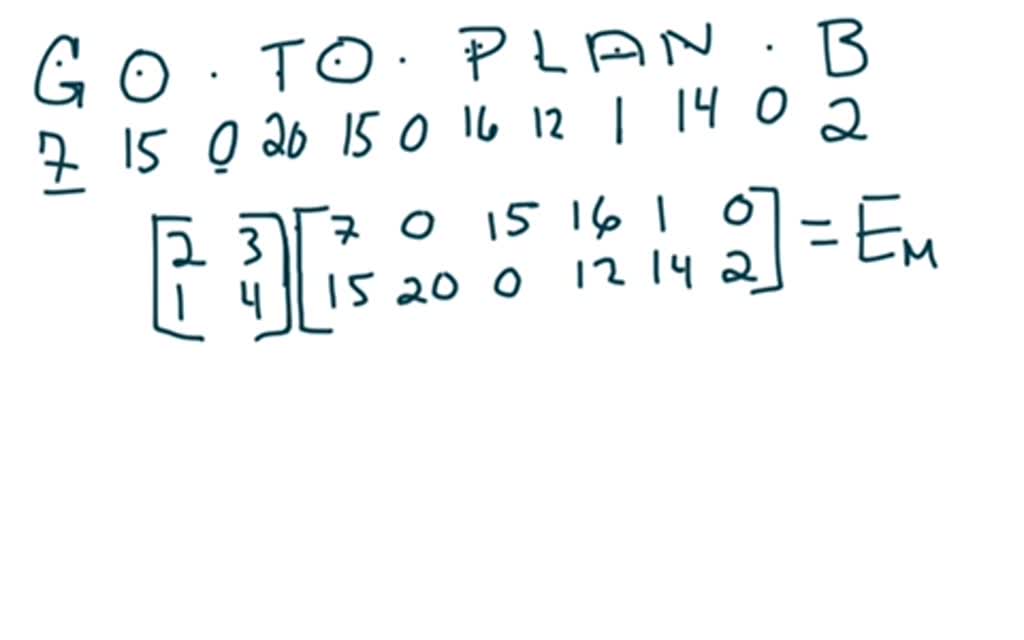 GO·TO·PLAN·B
7 15 0 20 15 0 16 12 1 14 0 2
[2 3] [7 0 15 16 1 0] = E_M
[1 4] [15 20 0 12 14 2]